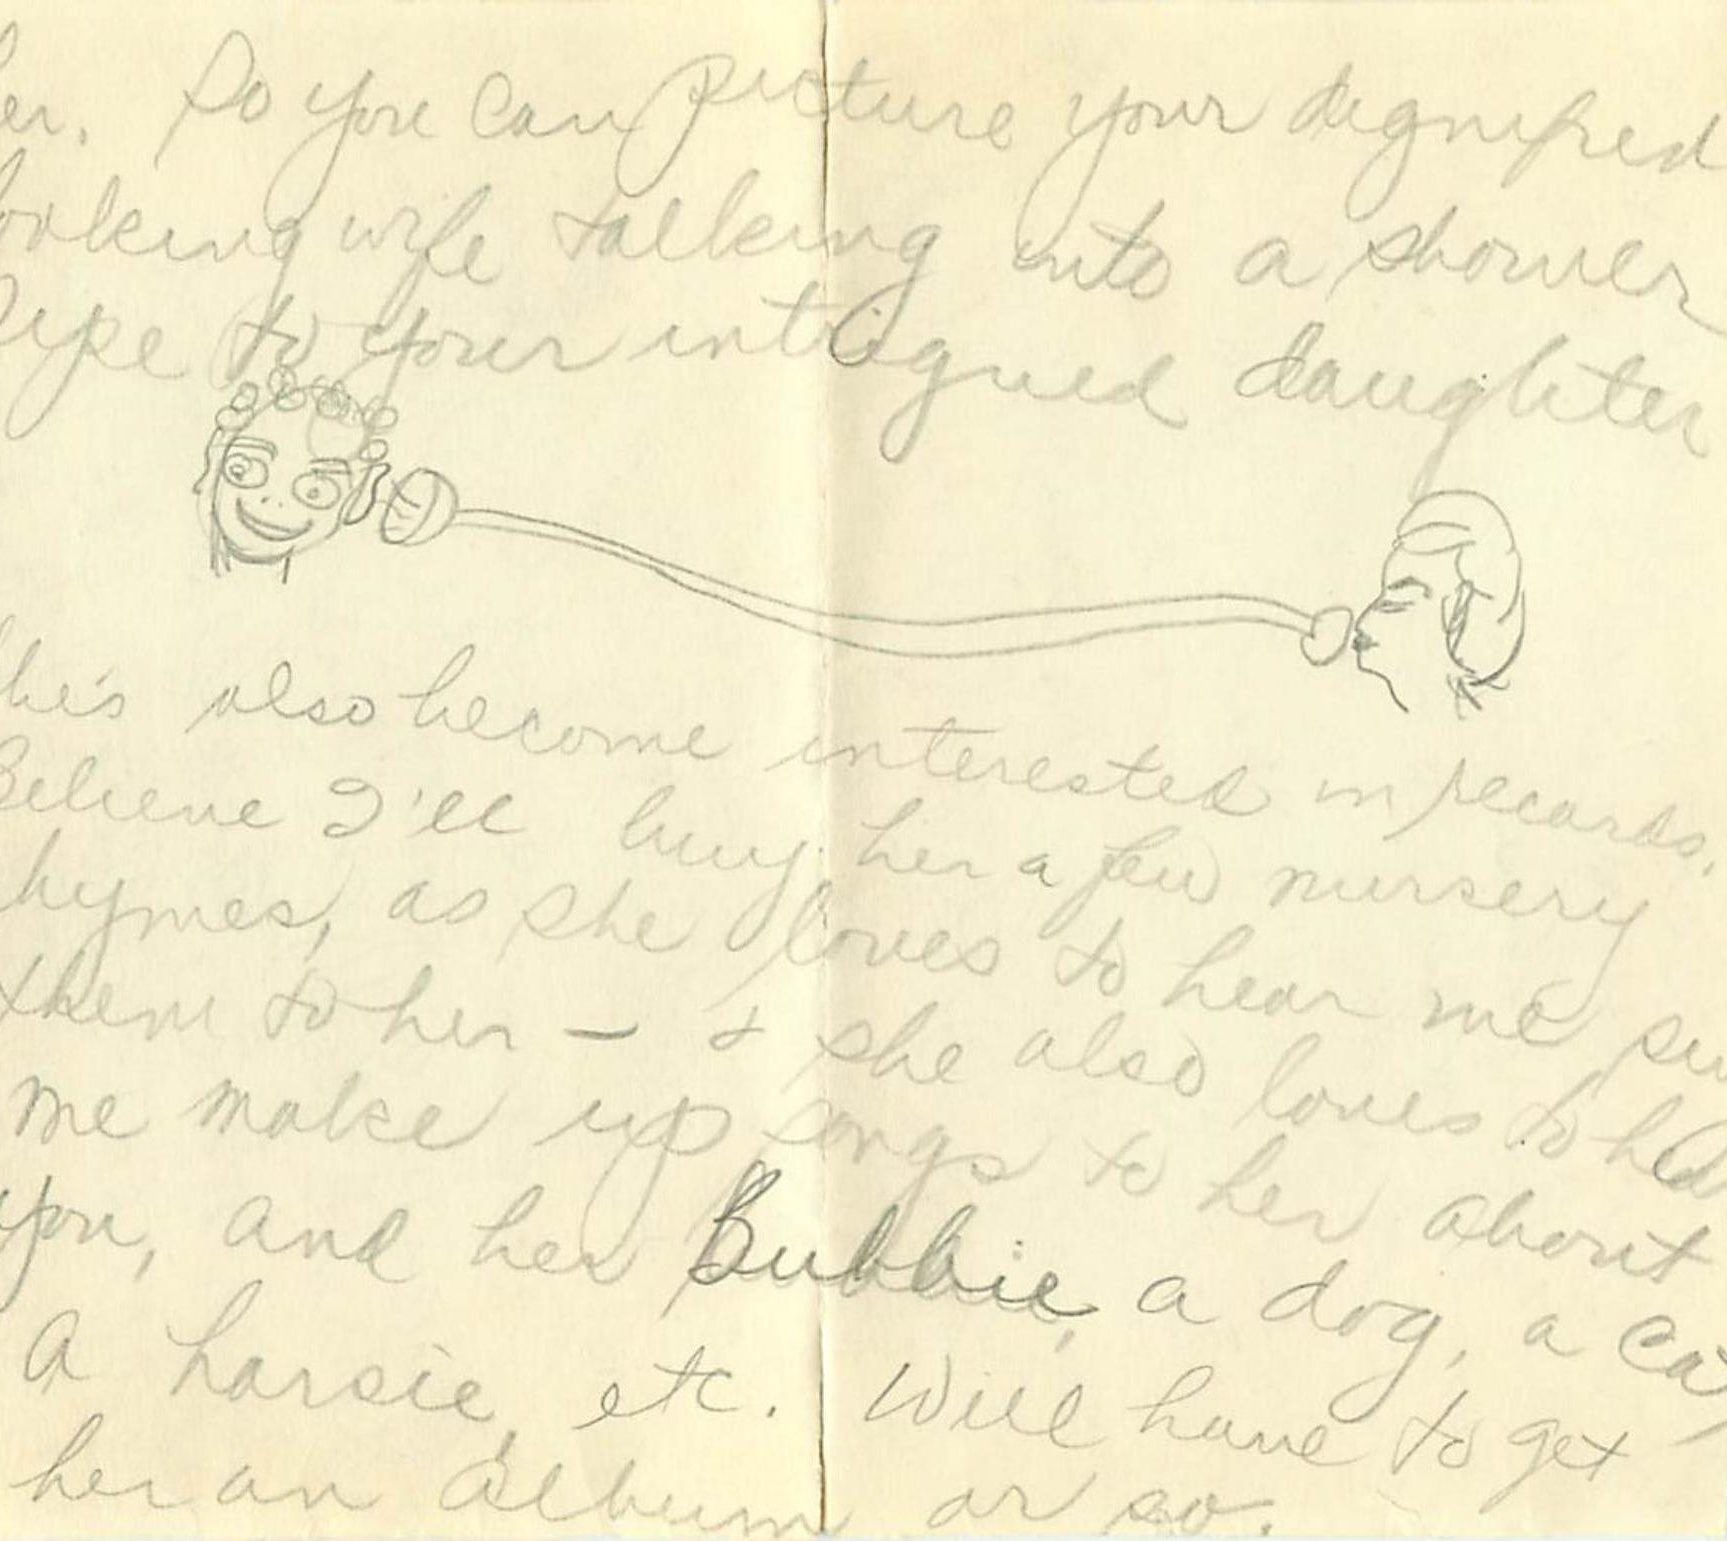 her. So you can picture your dignified
looking wife talking into a shower
pipe to your intrigued daughter
She's also become interested in records.
Believe I'll buy her a few nursery
rhymes, as she loves to hear me
them to her — & she also loves to hear
me make up songs to her about
you, and her Bubbie, a dog, a cat,
a horsie, etc. Will have to get
her an album or so.